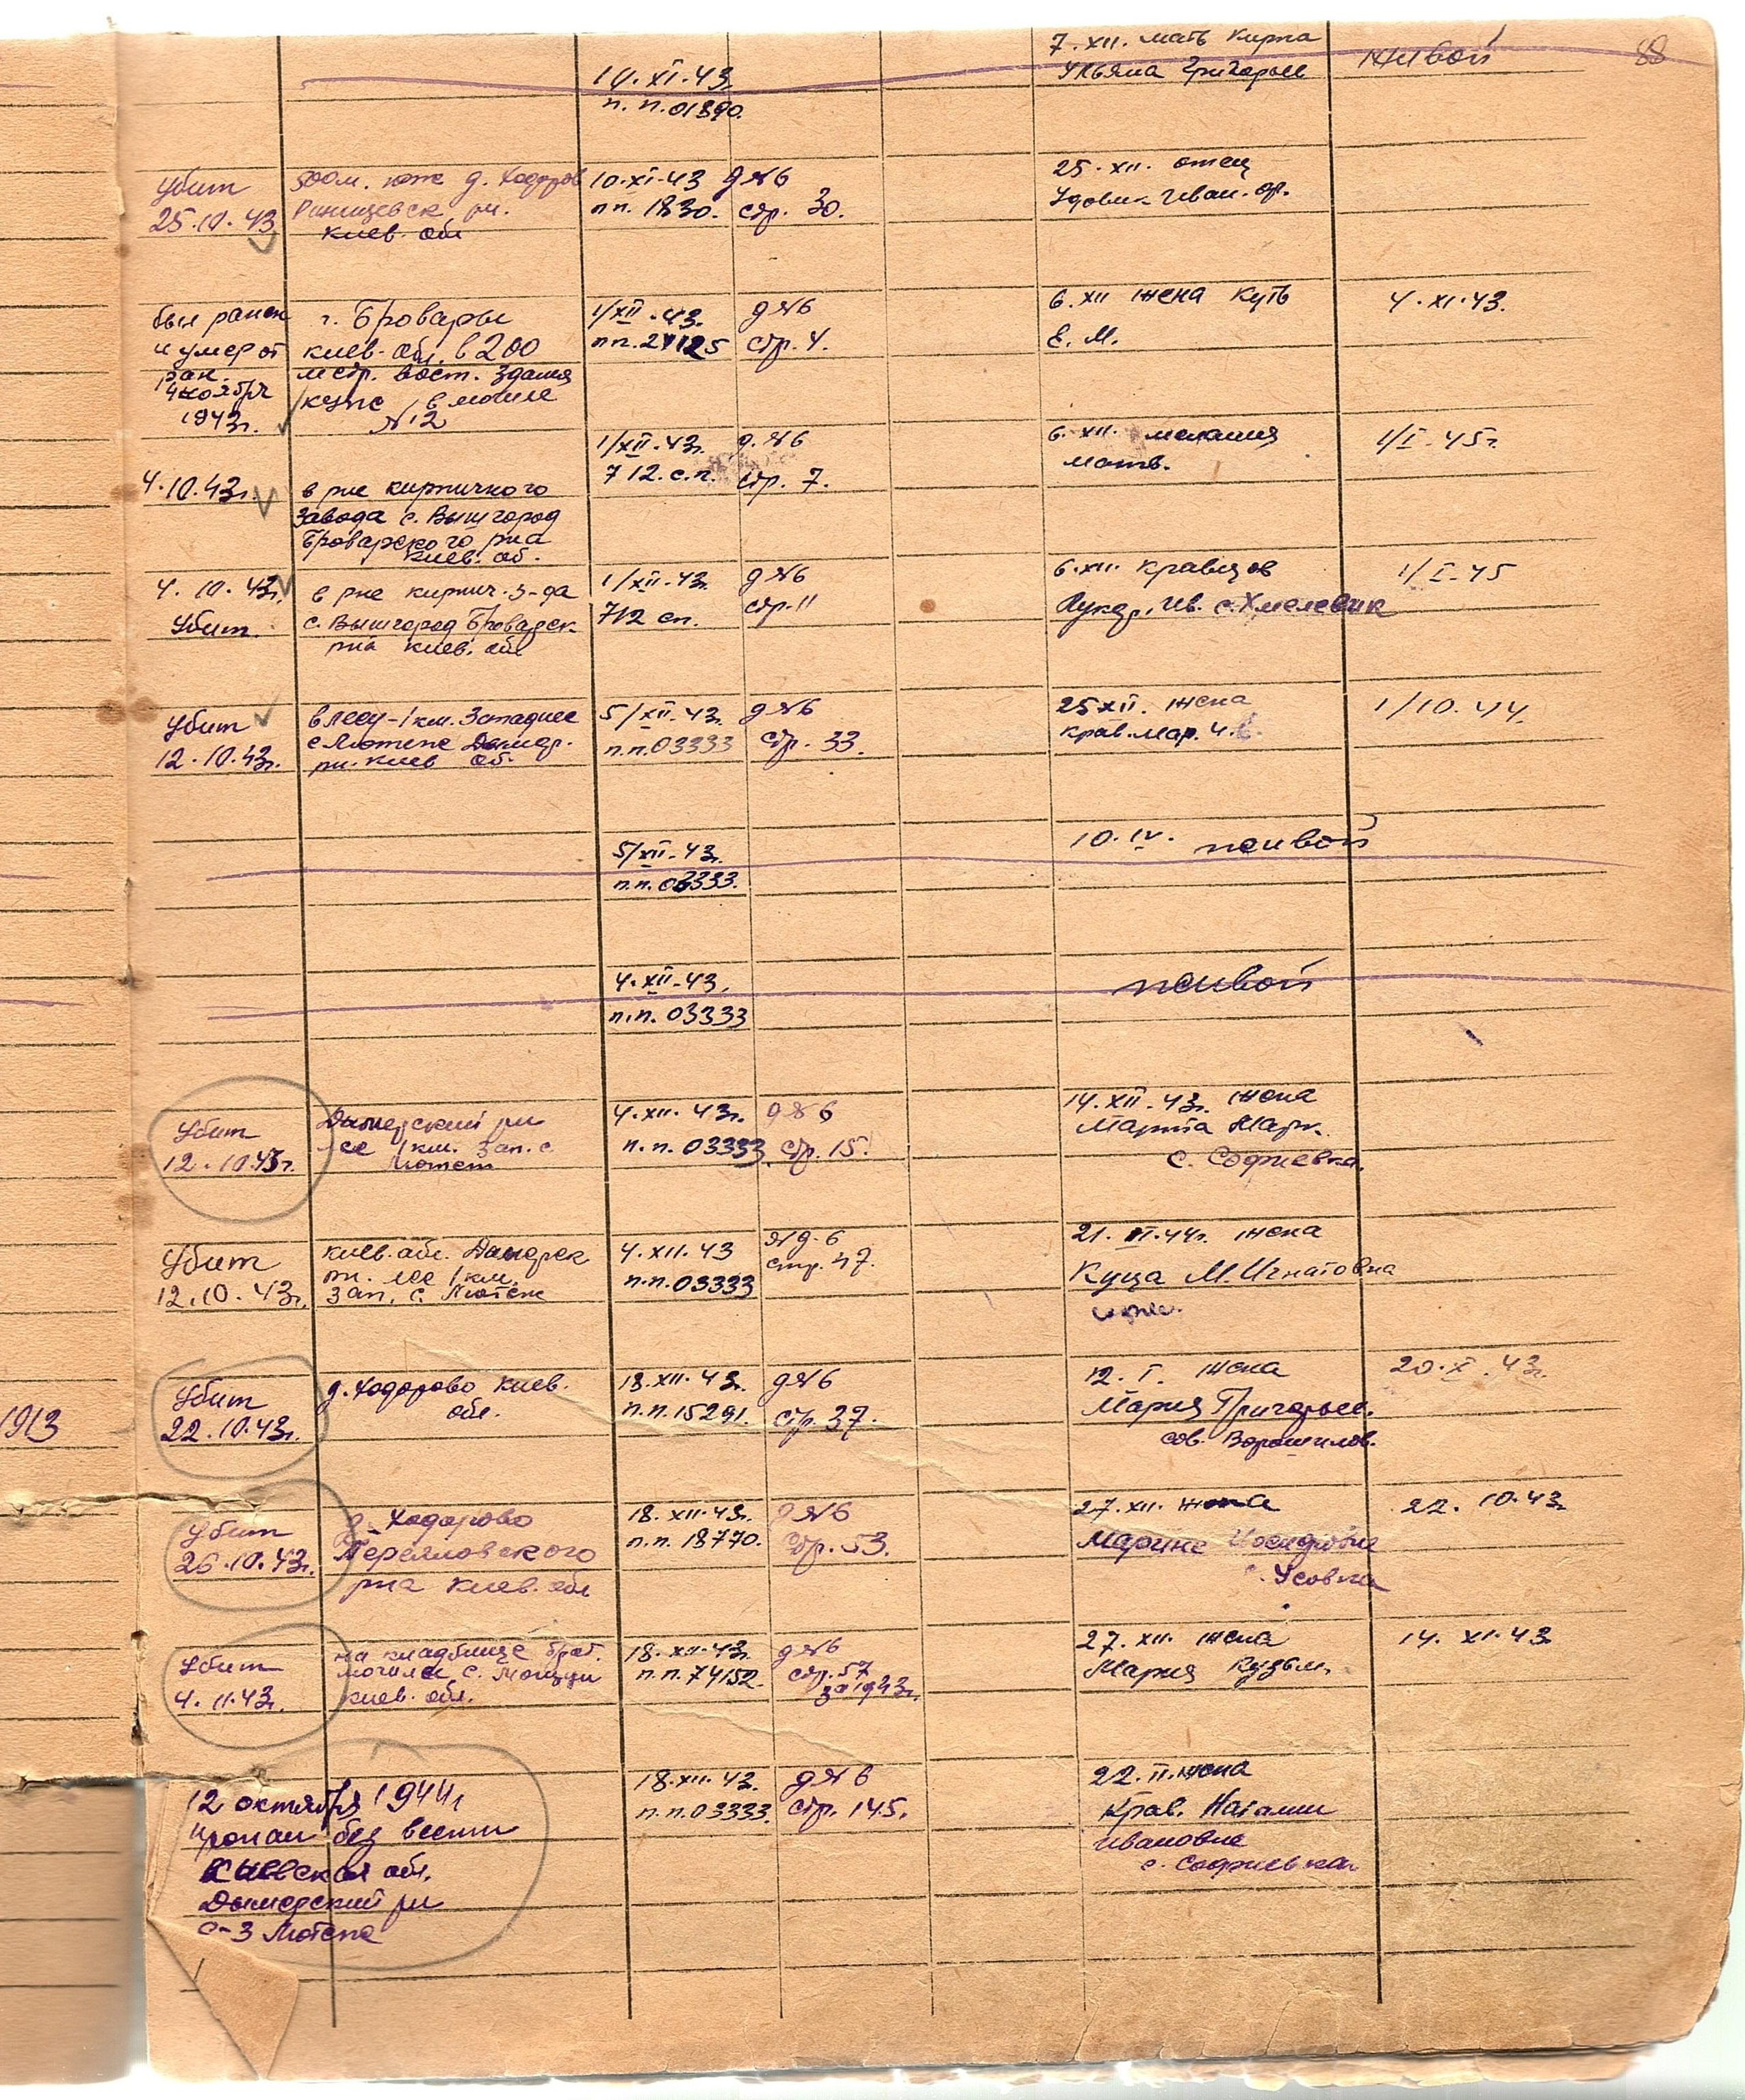 88
7. XII. мать Кирпа
Ульяна Григорьев
живой
14. XI. 43г.
п. п. 01890.
Убит
25.10.43
500м. юж д. Ходоров
рн.
Киев. обл
10.XI.43
пп. 1830.
д №6
стр. 30.
25. XII. отец
Удовик Иван. Ор.
был ранен
и умер от
ран.
4 ноября
1943г.
г. Бровары
Киев. обл. в 200
метр. вост. здания
в могиле
№12
1/XII.43.
пп.
д №6
стр. 4.
6. XII жена Куть
Е. М.
4. XI. 43.
4.10.43г.
в рне кирпичного
завода с. Вышгород
Броварского рна
Киев. об.
1/XII.43г.
712. с.п.
д. №6
стр. 7.
6. XII. мелания
матв.
1/I. 45г.
4. 10. 43г.
Убит.
в рне кирпич. з-да
с. Вышгород Броварск
рна киев. обл
1/XII.43г.
712 сп.
д №6
стр. 11
6. XII. Кравцов
Лукер. Ив. с. Хмелевик
1/I.45
Убит
12.10.43г.
в лесу-1км. Западнее
с Лютеж Дымер.
рн. Киев об.
5/XII.43г.
п.п.03333
д №6
стр. 33.
25 XII. жена
Крав. мар.
1/10.44.
5/XII.43г.
п.п.03333.
10. IV. живой
4.XII.43.
п.п. 03333
живой
Убит
12.10.43г.
Дымерский рн
лес 1км. Зап. с.
Лютеж
4.XII.43г.
п.п. 03333.
д № 6
стр. 15.
14. XII. 43г. жена
Марта Марк.
с. Софиевка.
Убит
12.10.43г.
Киев. обл. Дымерск
рн. лес 1км.
Зап. с. Лютеж
4. XII. 43
п.п. 03333
№ д. 6
стр. 47.
21. II.44г. жена
Куца М. Игнатовна
Убит
22.10.43г.
д. Ходорово Киев.
обл.
18. XII. 43г.
п.п. 15291.
д №6
стр. 37.
12. I. жена
Мария Григорьев.
сов. Ворошилов.
20. X. 43г.
1913
Убит
26.10.43г.
д. Ходорово
рна Киев. обл
18. XII.43г.
п.п. 18770.
д №6
стр. 53.
27. XII. жена
Марине
с. Усовка
22. 10.43
Убит
4.11.43г.
на кладбище брат.
могила с. Мощун
Киев. обл.
18. XII.43г.
п.п. 74152.
д №6
стр. 57
за 1943г.
27. XII. жена
Мария Кузьм.
14. XI.43
12 октября 1944г
пропал без вести
Киевская обл.
Дымерский рн
с-з Лютежа
18.XII.43.
п.п.03333.
д № 6
стр. 145.
22. II. жена
Крав. Наталии
Ивановне
с. Софиевка